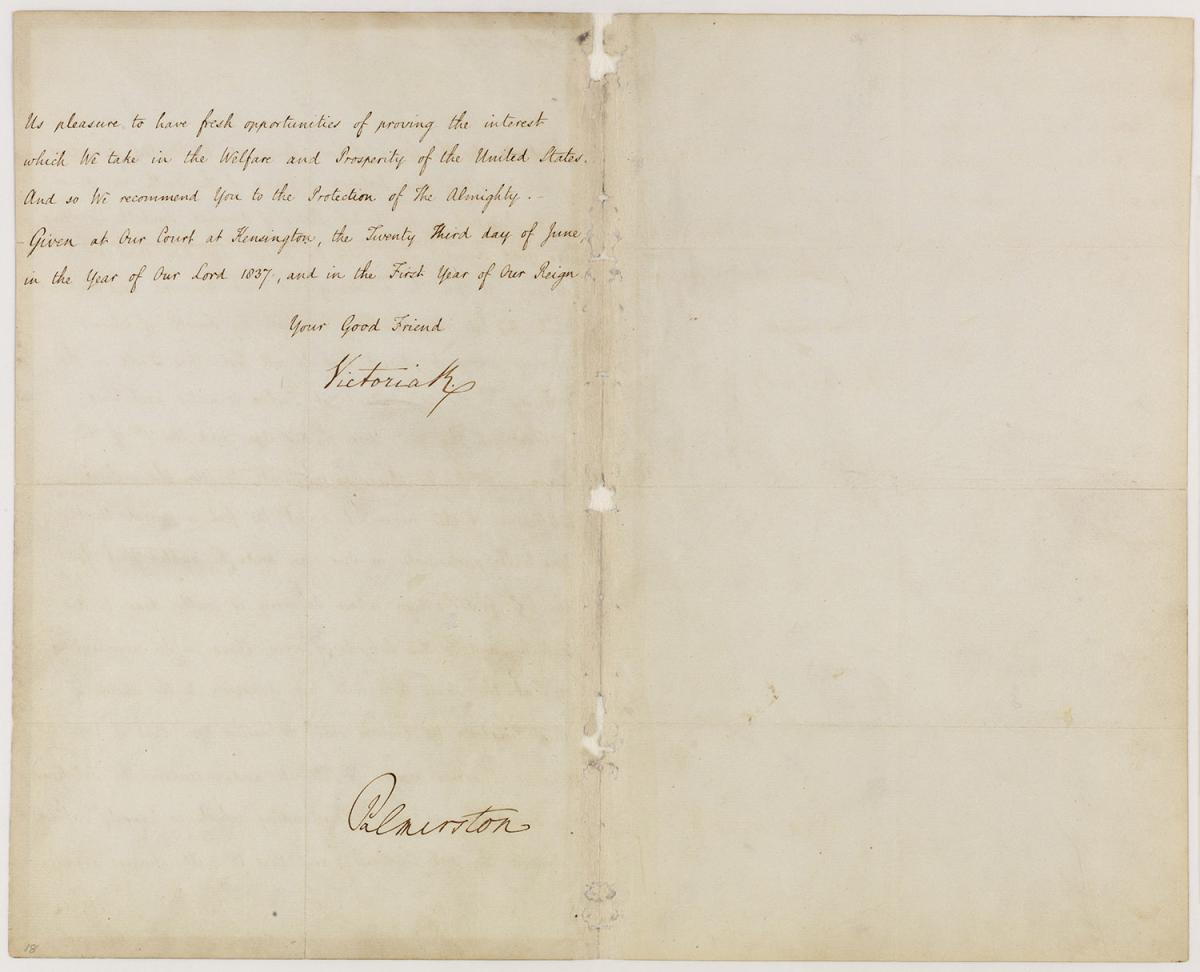 Us pleasure to have fresh opportunities of proving the interest
which We take in the Welfare and Prosperity of the United States.
And so We recommend You to the Protection of The Almighty. –
– Given at Our Court at Kensington, the Twenty Third day of June,
in the Year of Our Lord 1837, and in the First Year of Our Reign
Your Good Friend
Victoria R.
Palmerston
18